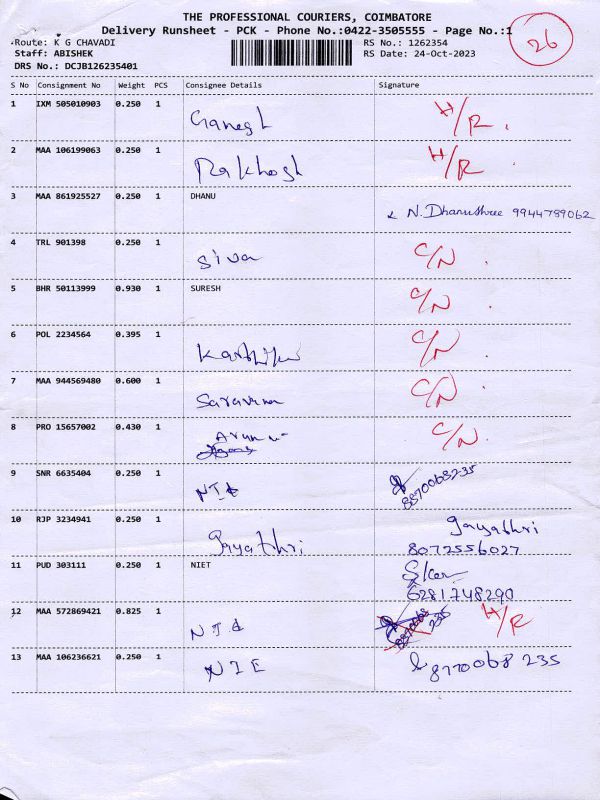 THE PROFESSIONAL COURIERS, COIMBATORE
Delivery Runsheet - PCK - Phone No.:0422-3505555 - Page No.:1
26
Route: K G CHAVADI RS No.: 1262354
Staff: ABISHEK RS Date: 24-Oct-2023
DRS No.: DCJB126235401
S No Consignment No Weight PCS Consignee Details Signature
1 IXM 505010903 0.250 1 Ganesh H/R.
2 MAA 106199063 0.250 1 Rakhesh H/R.
3 MAA 861925527 0.250 1 DHANU N. Dhanushree 9944789062
4 TRL 901398 0.250 1 Siva C/N.
5 BHR 50113999 0.930 1 SURESH C/N.
6 POL 2234564 0.395 1 C/N.
7 MAA 944569480 0.600 1 Saravana C/N.
8 PRO 15657002 0.430 1 Arun C/N.
9 SNR 6635404 0.250 1 8870068235
10 RJP 3234941 0.250 1 Gayathri Gayathri
8072556027
11 PUD 303111 0.250 1 NIET
6281748290
12 MAA 572869421 0.825 1 H/R
13 MAA 106236621 0.250 1 NIE 8770068 235